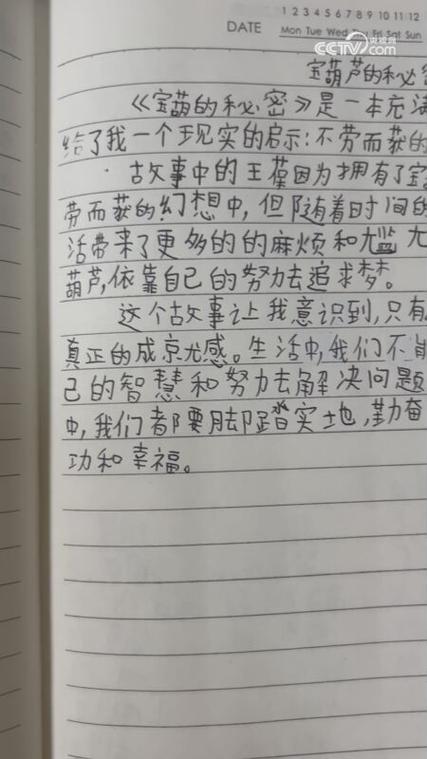 1 2 3 4 5 6 7 8 9 10 11 12
DATE Mon Tue Wed Fri Sat Sun
央视网
CCTV.com
宝葫芦的秘
《宝葫的秘密》是一本充满
给了我一个现实的启示:不劳而获的
故事中的王葆因为拥有了宝
劳而获的幻想中,但随着时间的
活带来了更多的的麻烦和尴尬
葫芦,依靠自己的努力去追求梦。
这个故事让我意识到,只有
真正的成京尤感。生活中,我们不能
己的智慧和努力去解决问题
中,我们都要脚踏实地,勤奋
功和幸福。